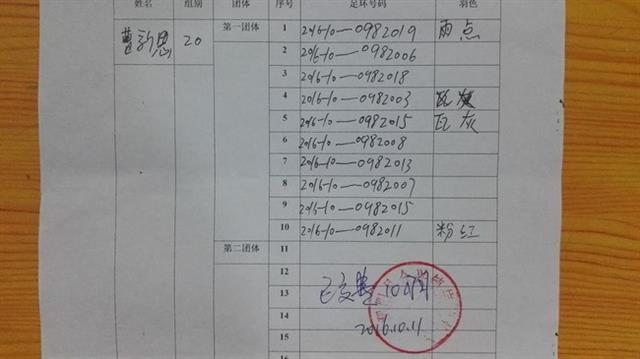 姓名 组别 团体 序号 足环号码 羽色
曹新恩 20 第一团体 1 2016-10-0982019 雨点
2 2016-10-0982006
3 2016-10-0982018
4 2016-10-0982003 瓦灰
5 2016-10-0982015 瓦灰
6 2016-10-0982008
7 2016-10-0982013
8 2016-10-0982007
9 2016-10-0982015
10 2016-10-0982011 粉红
第二团体 11
12
13
14
2016.10.11
15